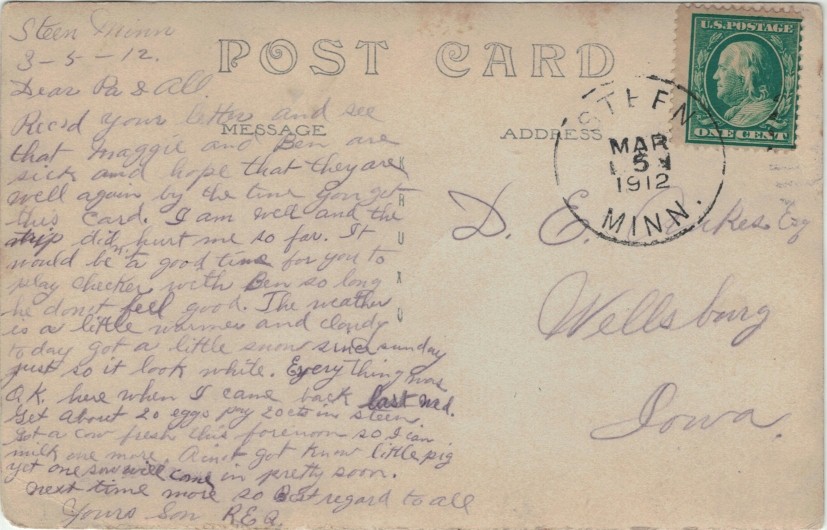 Steen Minn
3-5-12.
POST CARD
U.S. POSTAGE
ONE CENT
STEEN
MAR
5
1912
MINN.
MESSAGE
ADDRESS
Dear Pa & All.
Recd your letter and see
that Maggie and Ben are
sick and hope that they are
well again by the time you get
this card. I am well and the
trip didn't hurt me so far. It
would be a good time for you to
play checker with Ben so long
he donot feel good. The weather
is a little warmer and cloudy
today got a little snow since sunday
just so it look white. Everything was
O.K. here when I came back last wed.
Get about 20 eggs pay 20 cts in steen.
Got a cow fresh this forenoon so I can
milk one more. got know little pig
yet one sow will come in pretty soon.
next time more so Best regard to all
Yours Son
KRUXO
D. E. Esq
Wellsburg
Iowa.